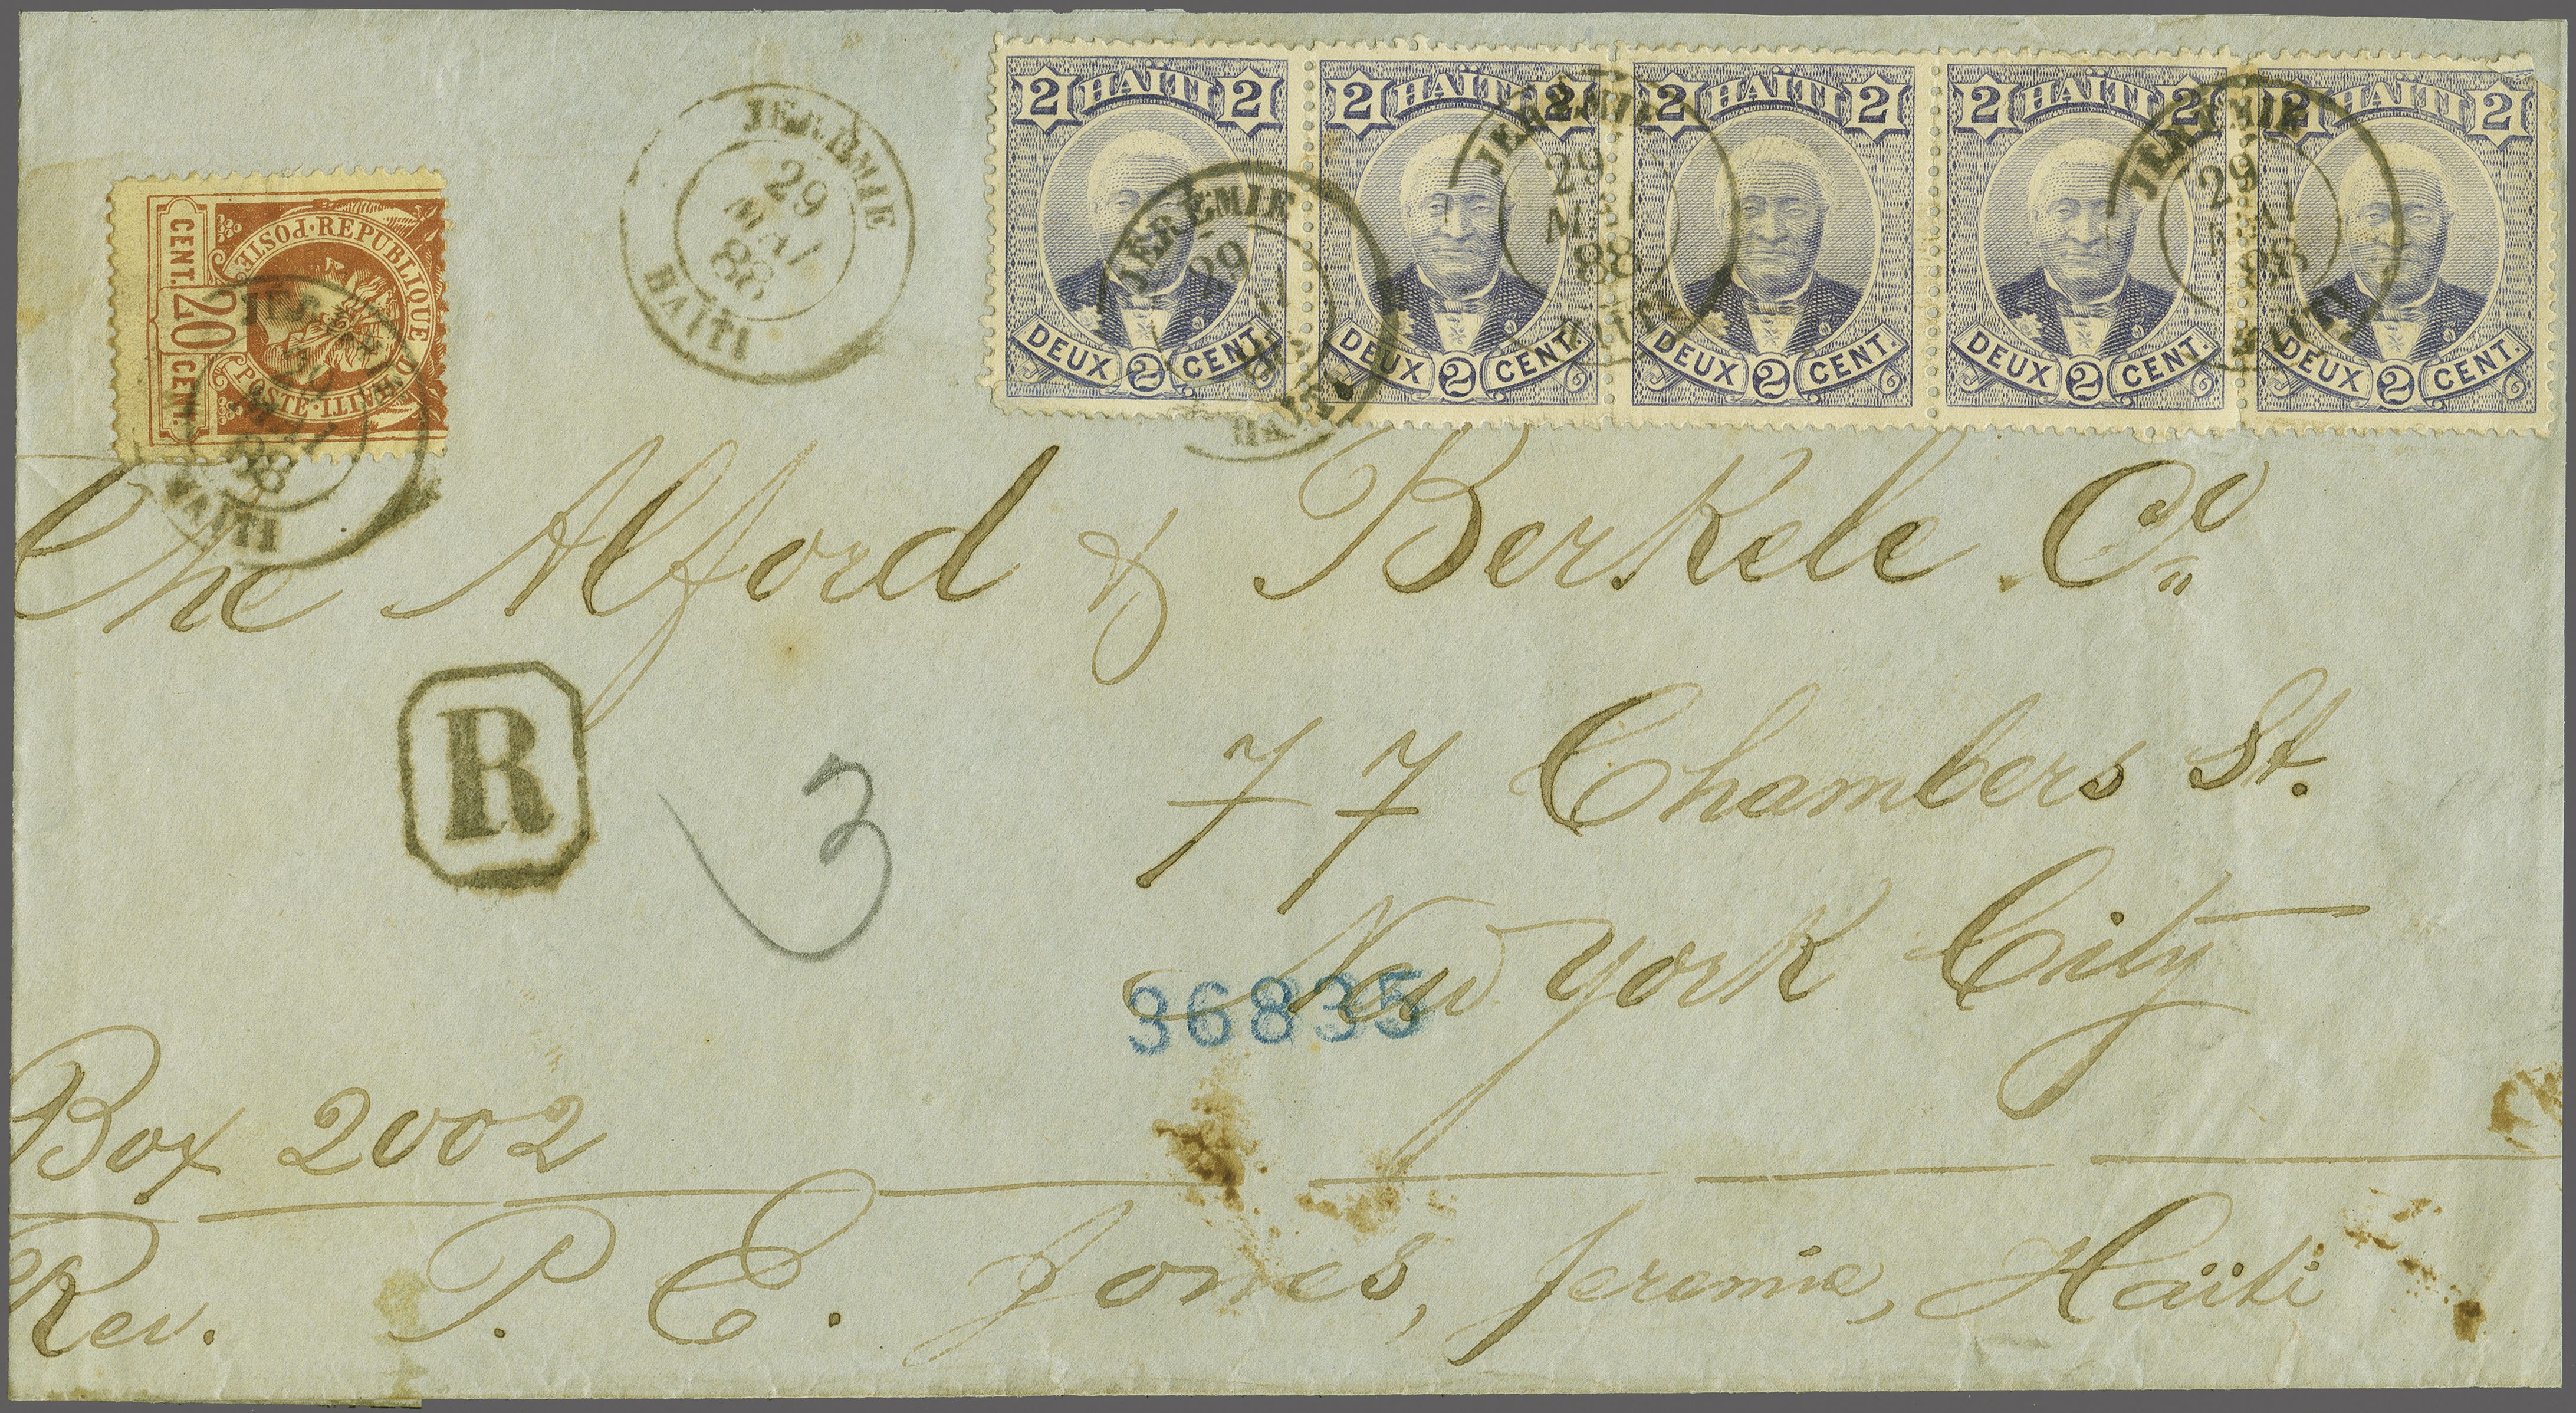 2 HAÏTI 2
DEUX 2 CENT.
2 HAÏTI 2
DEUX 2 CENT.
2 HAÏTI 2
DEUX 2 CENT.
2 HAÏTI 2
DEUX 2 CENT.
2 HAÏTI 2
DEUX 2 CENT.
CENT. 20 CENT.
REPUBLIQUE D'HAITI
POSTE
POSTE
JEREMIE
29
MAI
88
HAÏTI
JEREMIE
29
MAI
88
HAÏTI
JEREMIE
29
MAI
88
HAÏTI
JEREMIE
29
MAI
88
HAÏTI
MAI
88
HAÏTI
The Alford & Berkele Co
R
3
77 Chambers St.
New York City
36835
Box 2002
Rev. P. E. Jones, Jeremie, Haïti